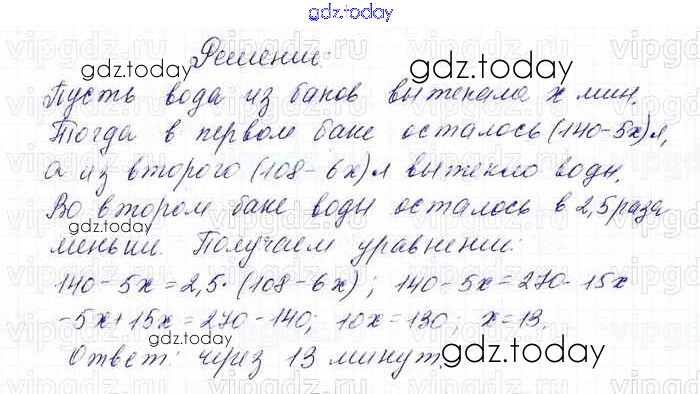 gdz.today
Решение:
gdz.today gdz.today
Пусть вода из баков вытекала x мин.
Тогда в первом баке осталось (140-5x)л,
а из второго (108-6x)л вытекло воды.
Во втором баке воды осталось в 2,5 раза
gdz.today gdz.today
меньше. Получаем уравнение:
140-5x=2,5·(108-6x); 140-5x=270-15x
-5x+15x=270-140; 10x=130; x=13.
gdz.today gdz.today
Ответ: через 13 минут.